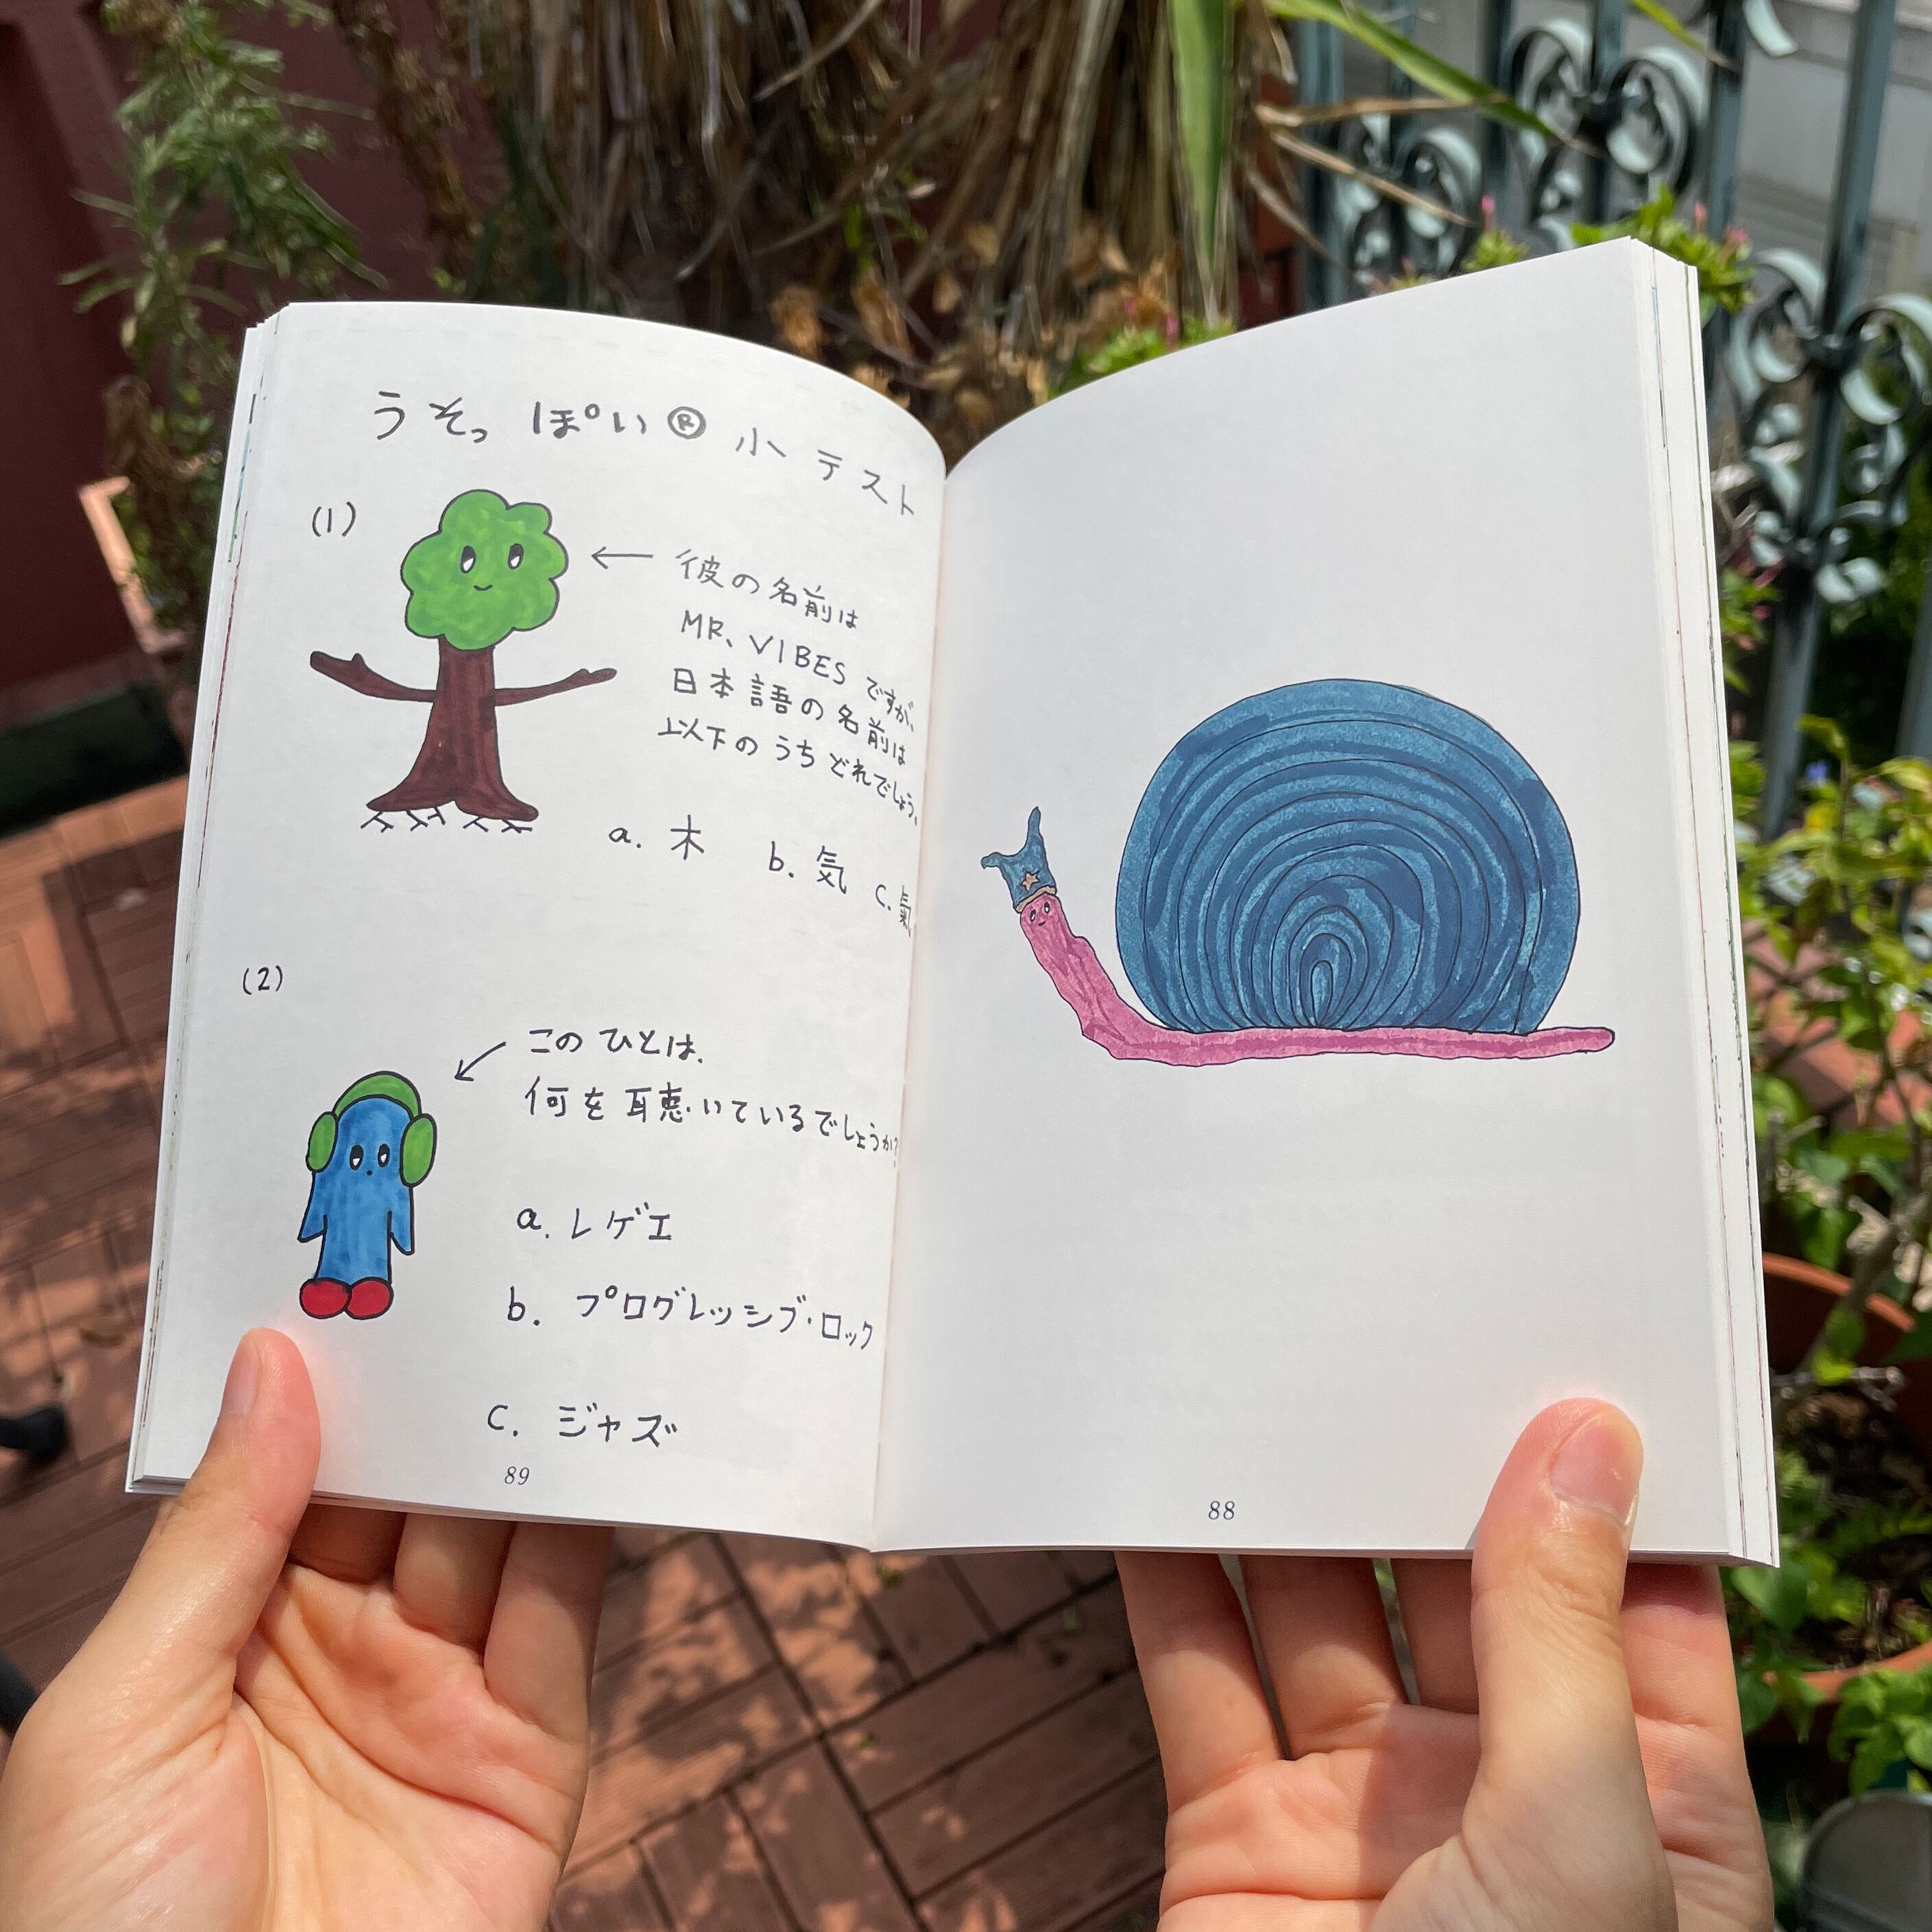 うそっぽい® 小テスト
(1)
← 彼の名前は
MR. VIBES ですが、
日本語の名前は
以下のうちどれでしょう。
a. 木 b. 気 c. 氣
(2)
このひとは、
何を聴いているでしょうか?
a. レゲエ
b. プログレッシブ・ロック
c. ジャズ
89
88